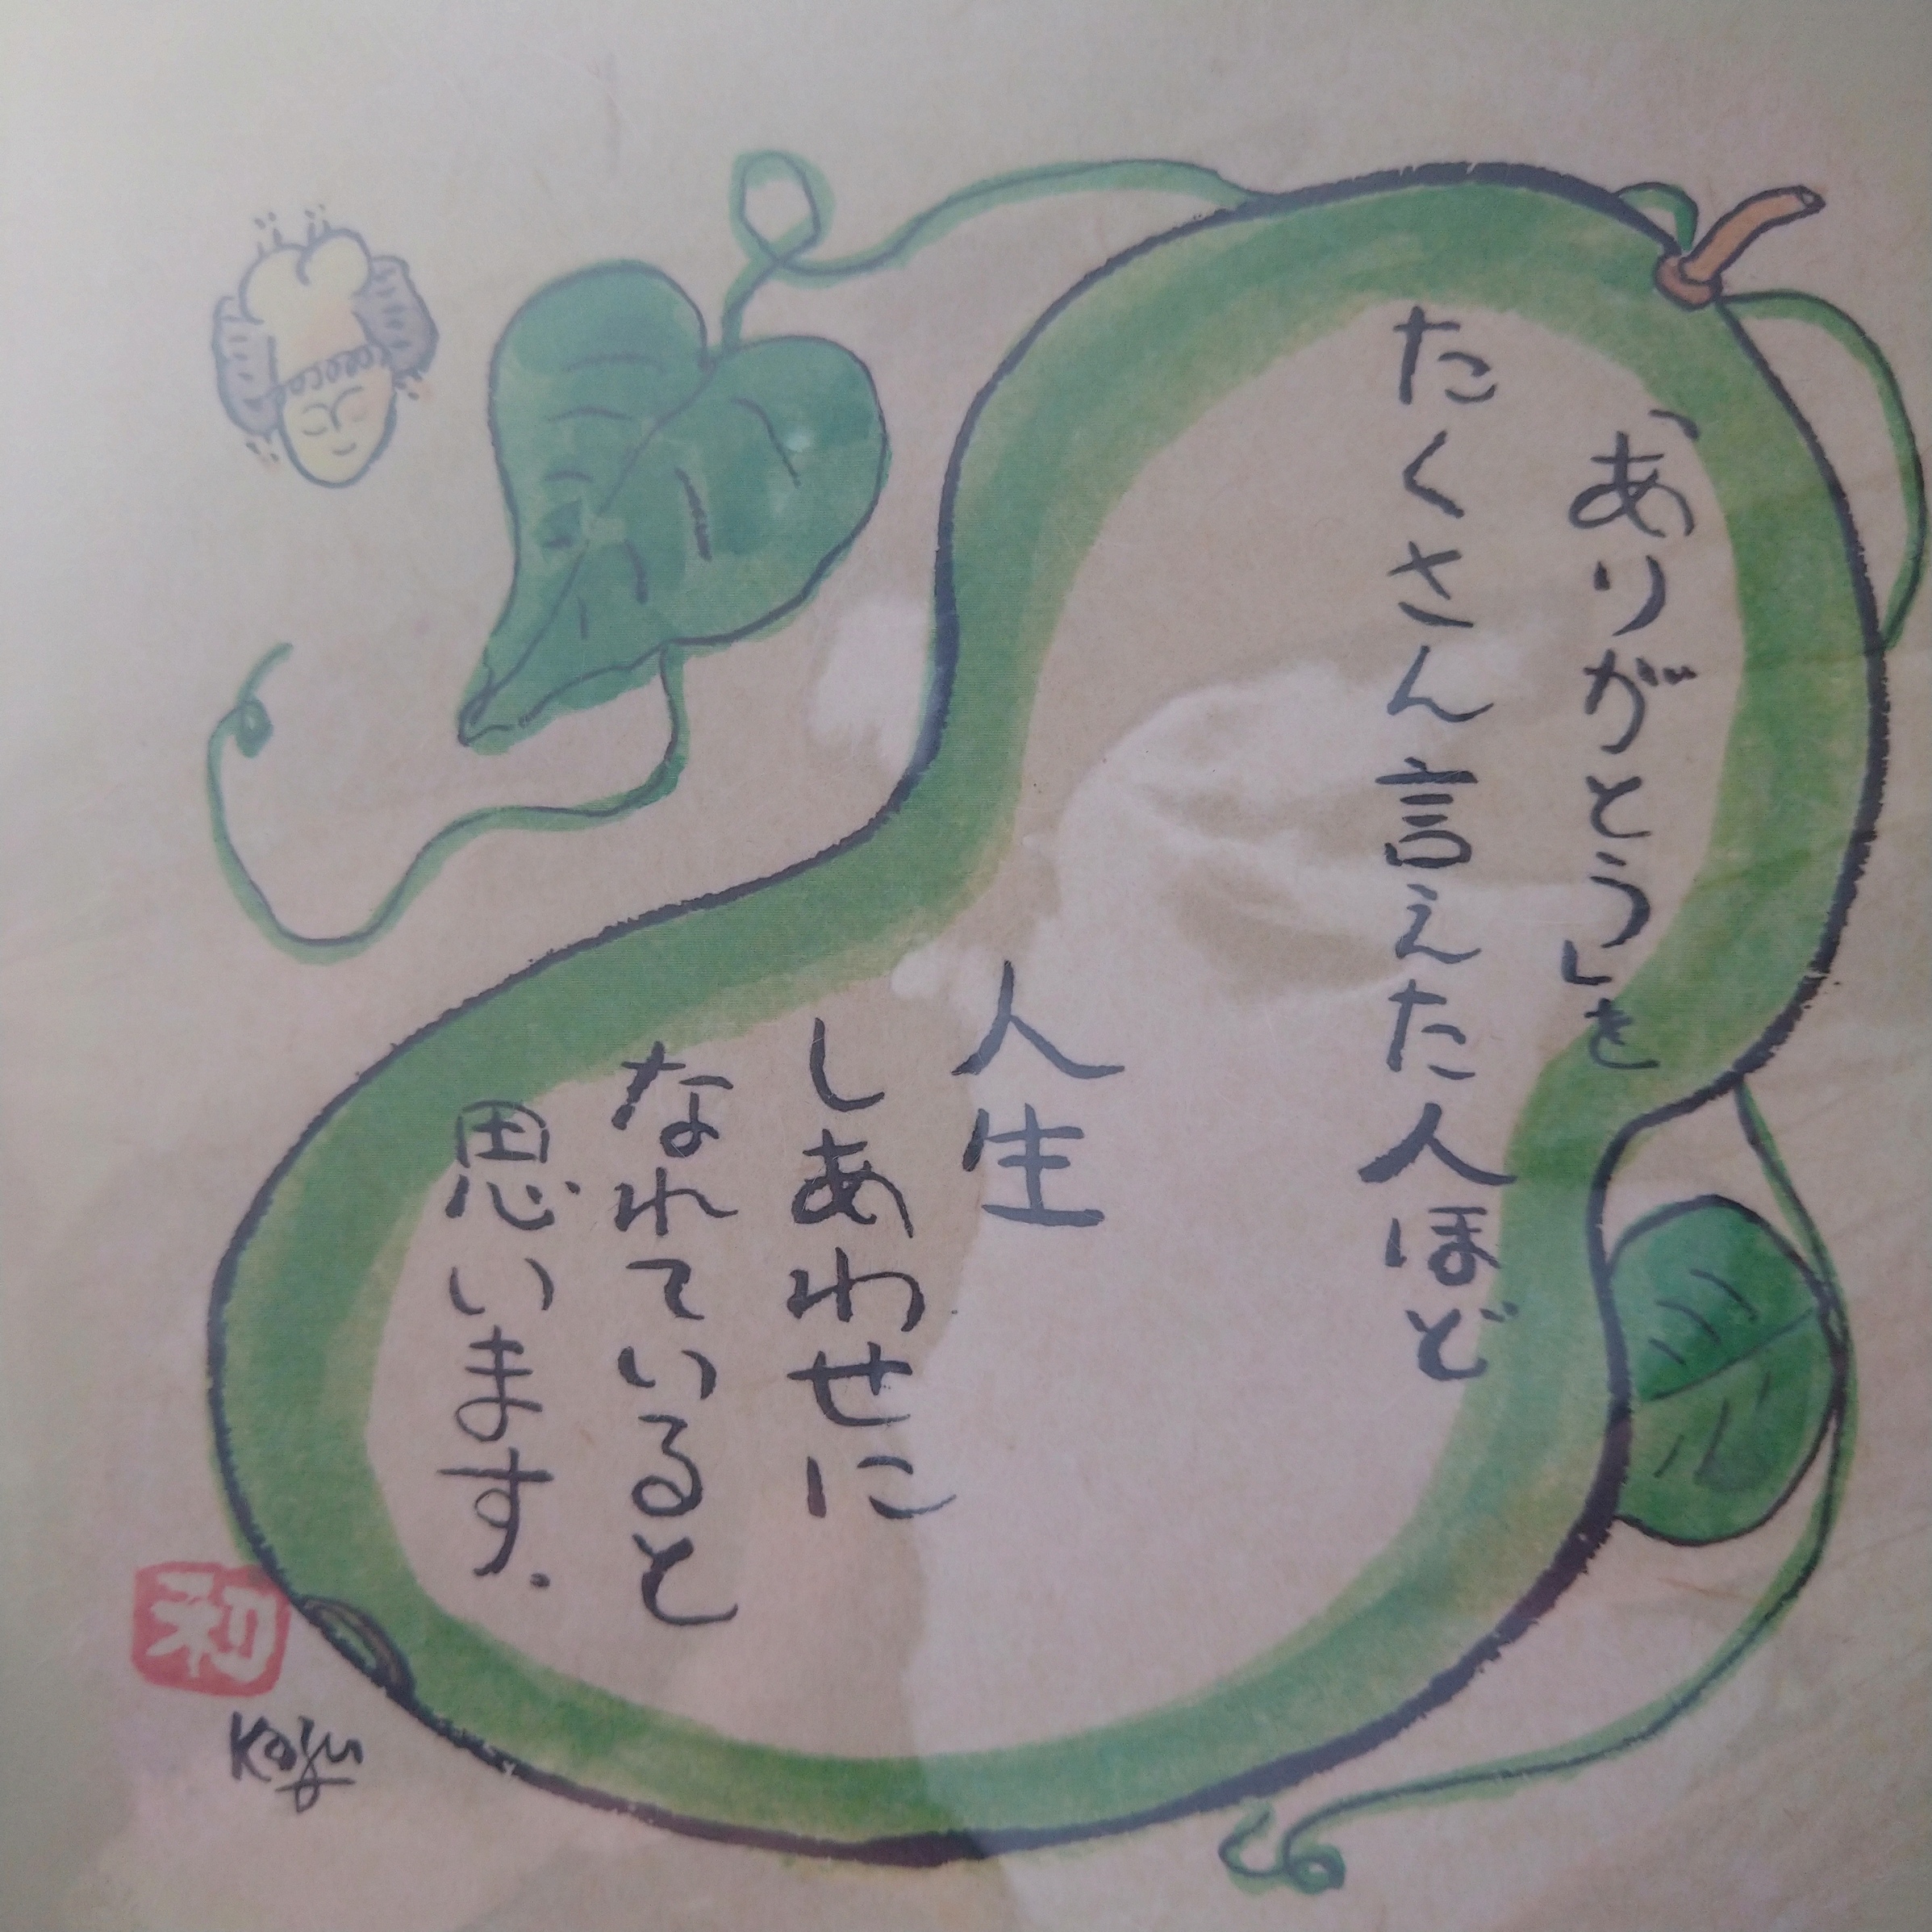 「ありがとう」を
たくさん言えた人ほど
人生
しあわせに
なれていると
思います.
和